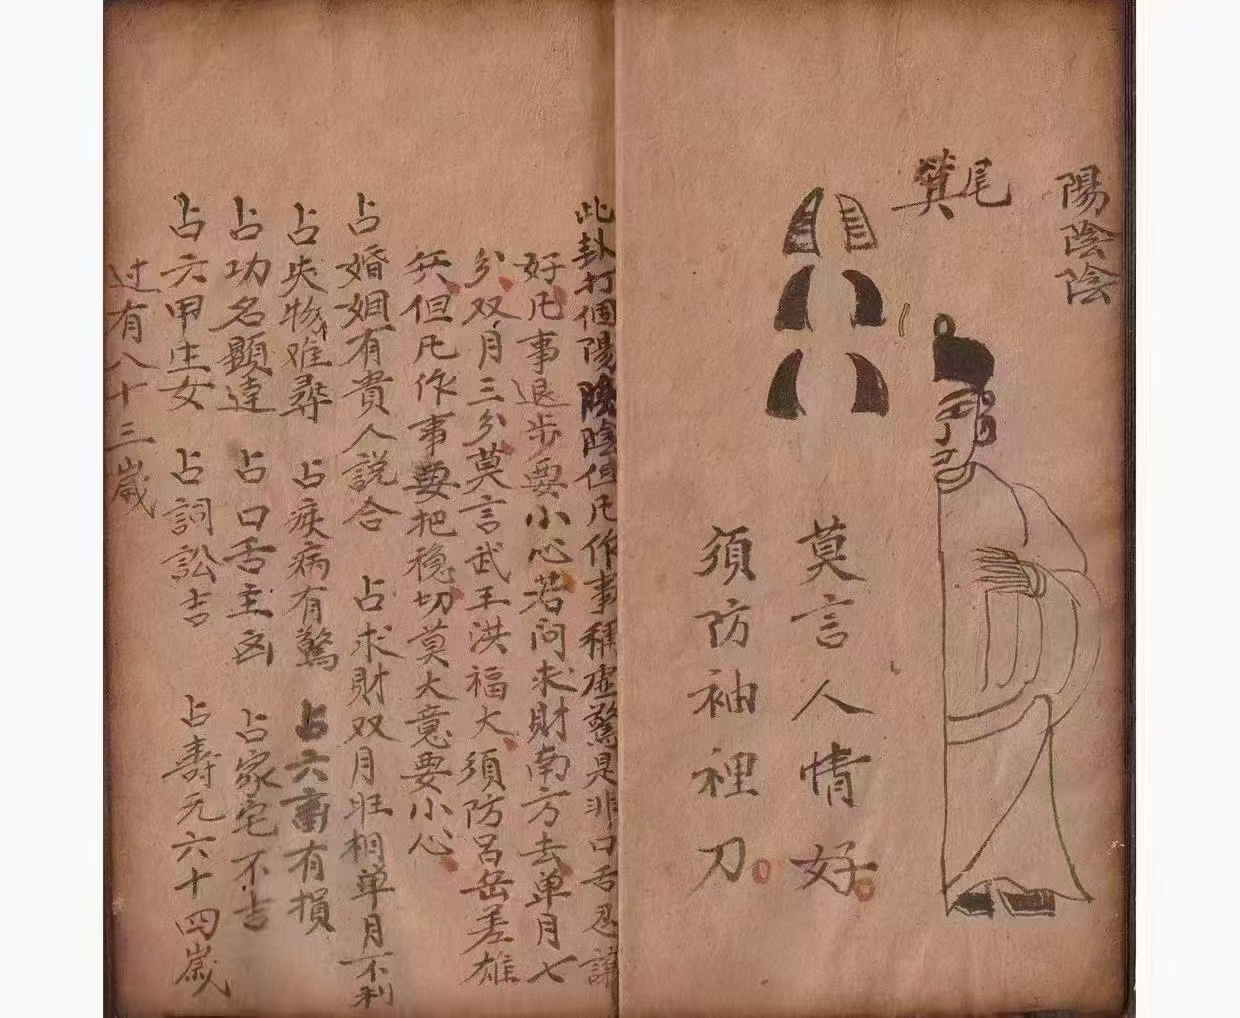 陽陰陰
尾
箕
莫言人情好
須防袖裡刀
此卦打個陽陰陰但凡作事稱虛驚是非口舌忍讓
好凡事退步要小心若问求財南方去单月七
分双月三分莫言武王洪福大須防吕岳差雄
兵但凡作事要把稳切莫大意要小心
占婚姻有貴人説合 占求財双月旺相单月不利
占失物难尋 占疾病有驚 占六畜有損
占功名顯達 占口舌主凶 占家宅不吉
占六甲生女 占詞訟吉 占壽元六十四歲
过有八十三歲